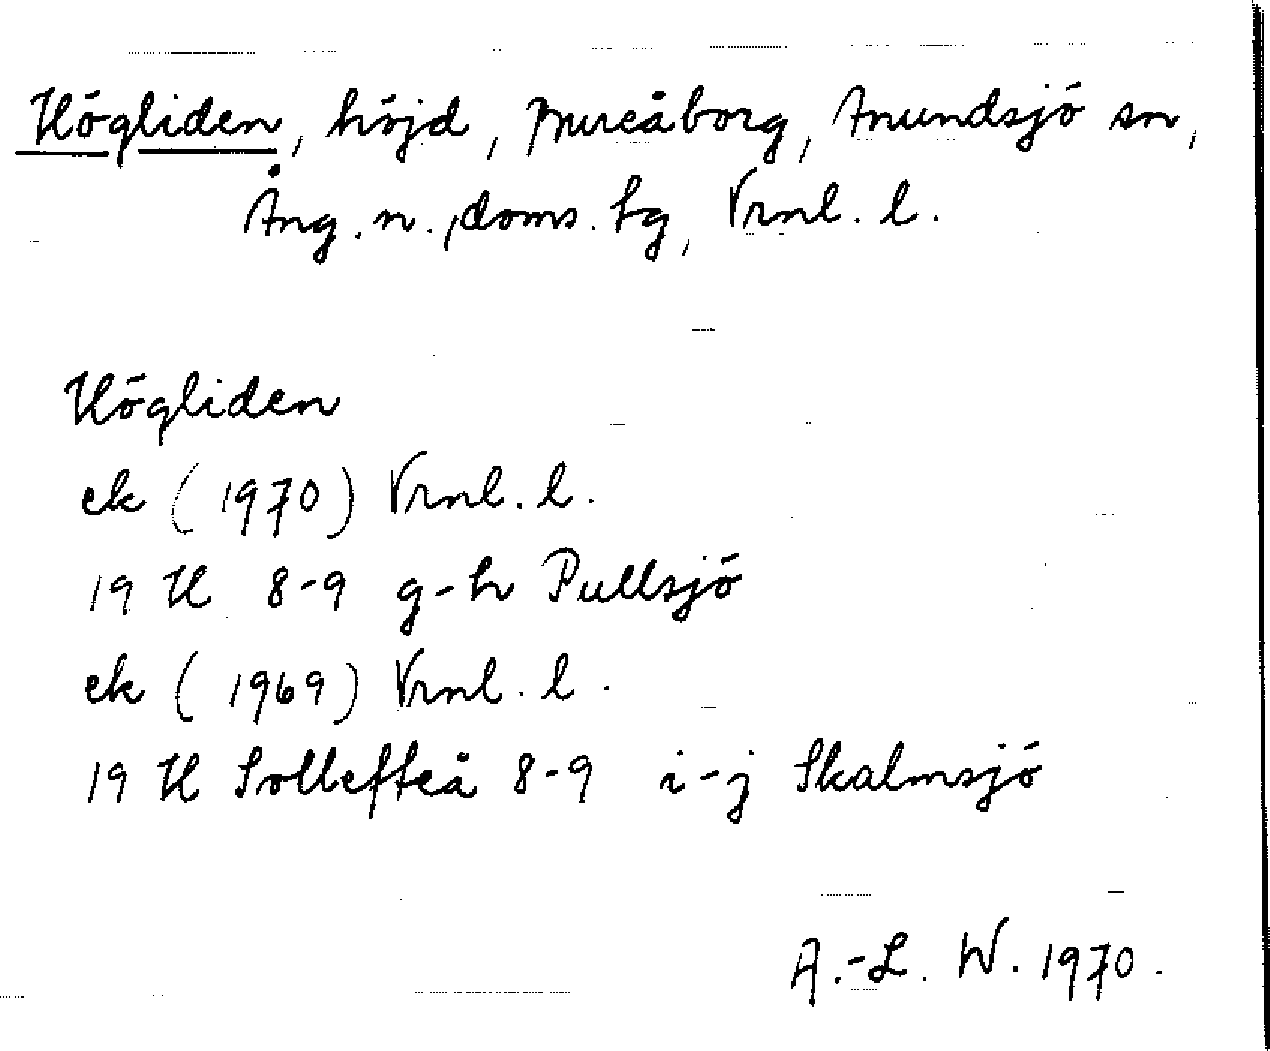 Högliden, höjd, Mureåborg, Anundsjö sn,
Ång. n., doms. hg, Vrnl. l.
Högliden
ek (1970) Vrnl. l.
19 H 8-9 g-h Pullsjö
ek (1969) Vrnl. l.
19 H Sollefteå 8-9 i-j Skalmsjö
A.-L. W. 1970.